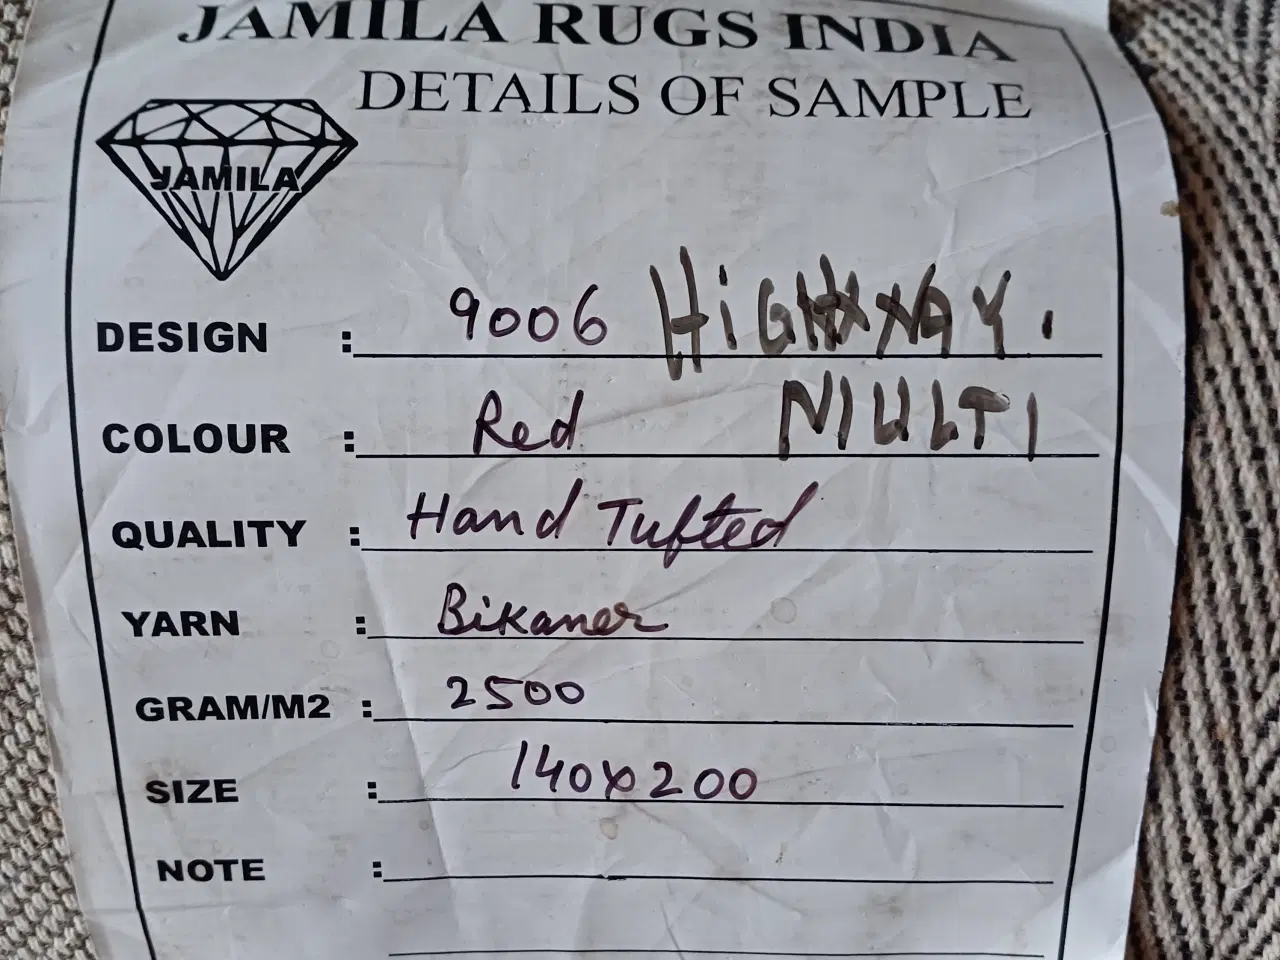 JAMILA RUGS INDIA
DETAILS OF SAMPLE
JAMILA
DESIGN : 9006 HiGHWAY.
COLOUR : Red MULTI
QUALITY : Hand Tufted
YARN : Bikaner
GRAM/M2 : 2500
SIZE : 140x200
NOTE :